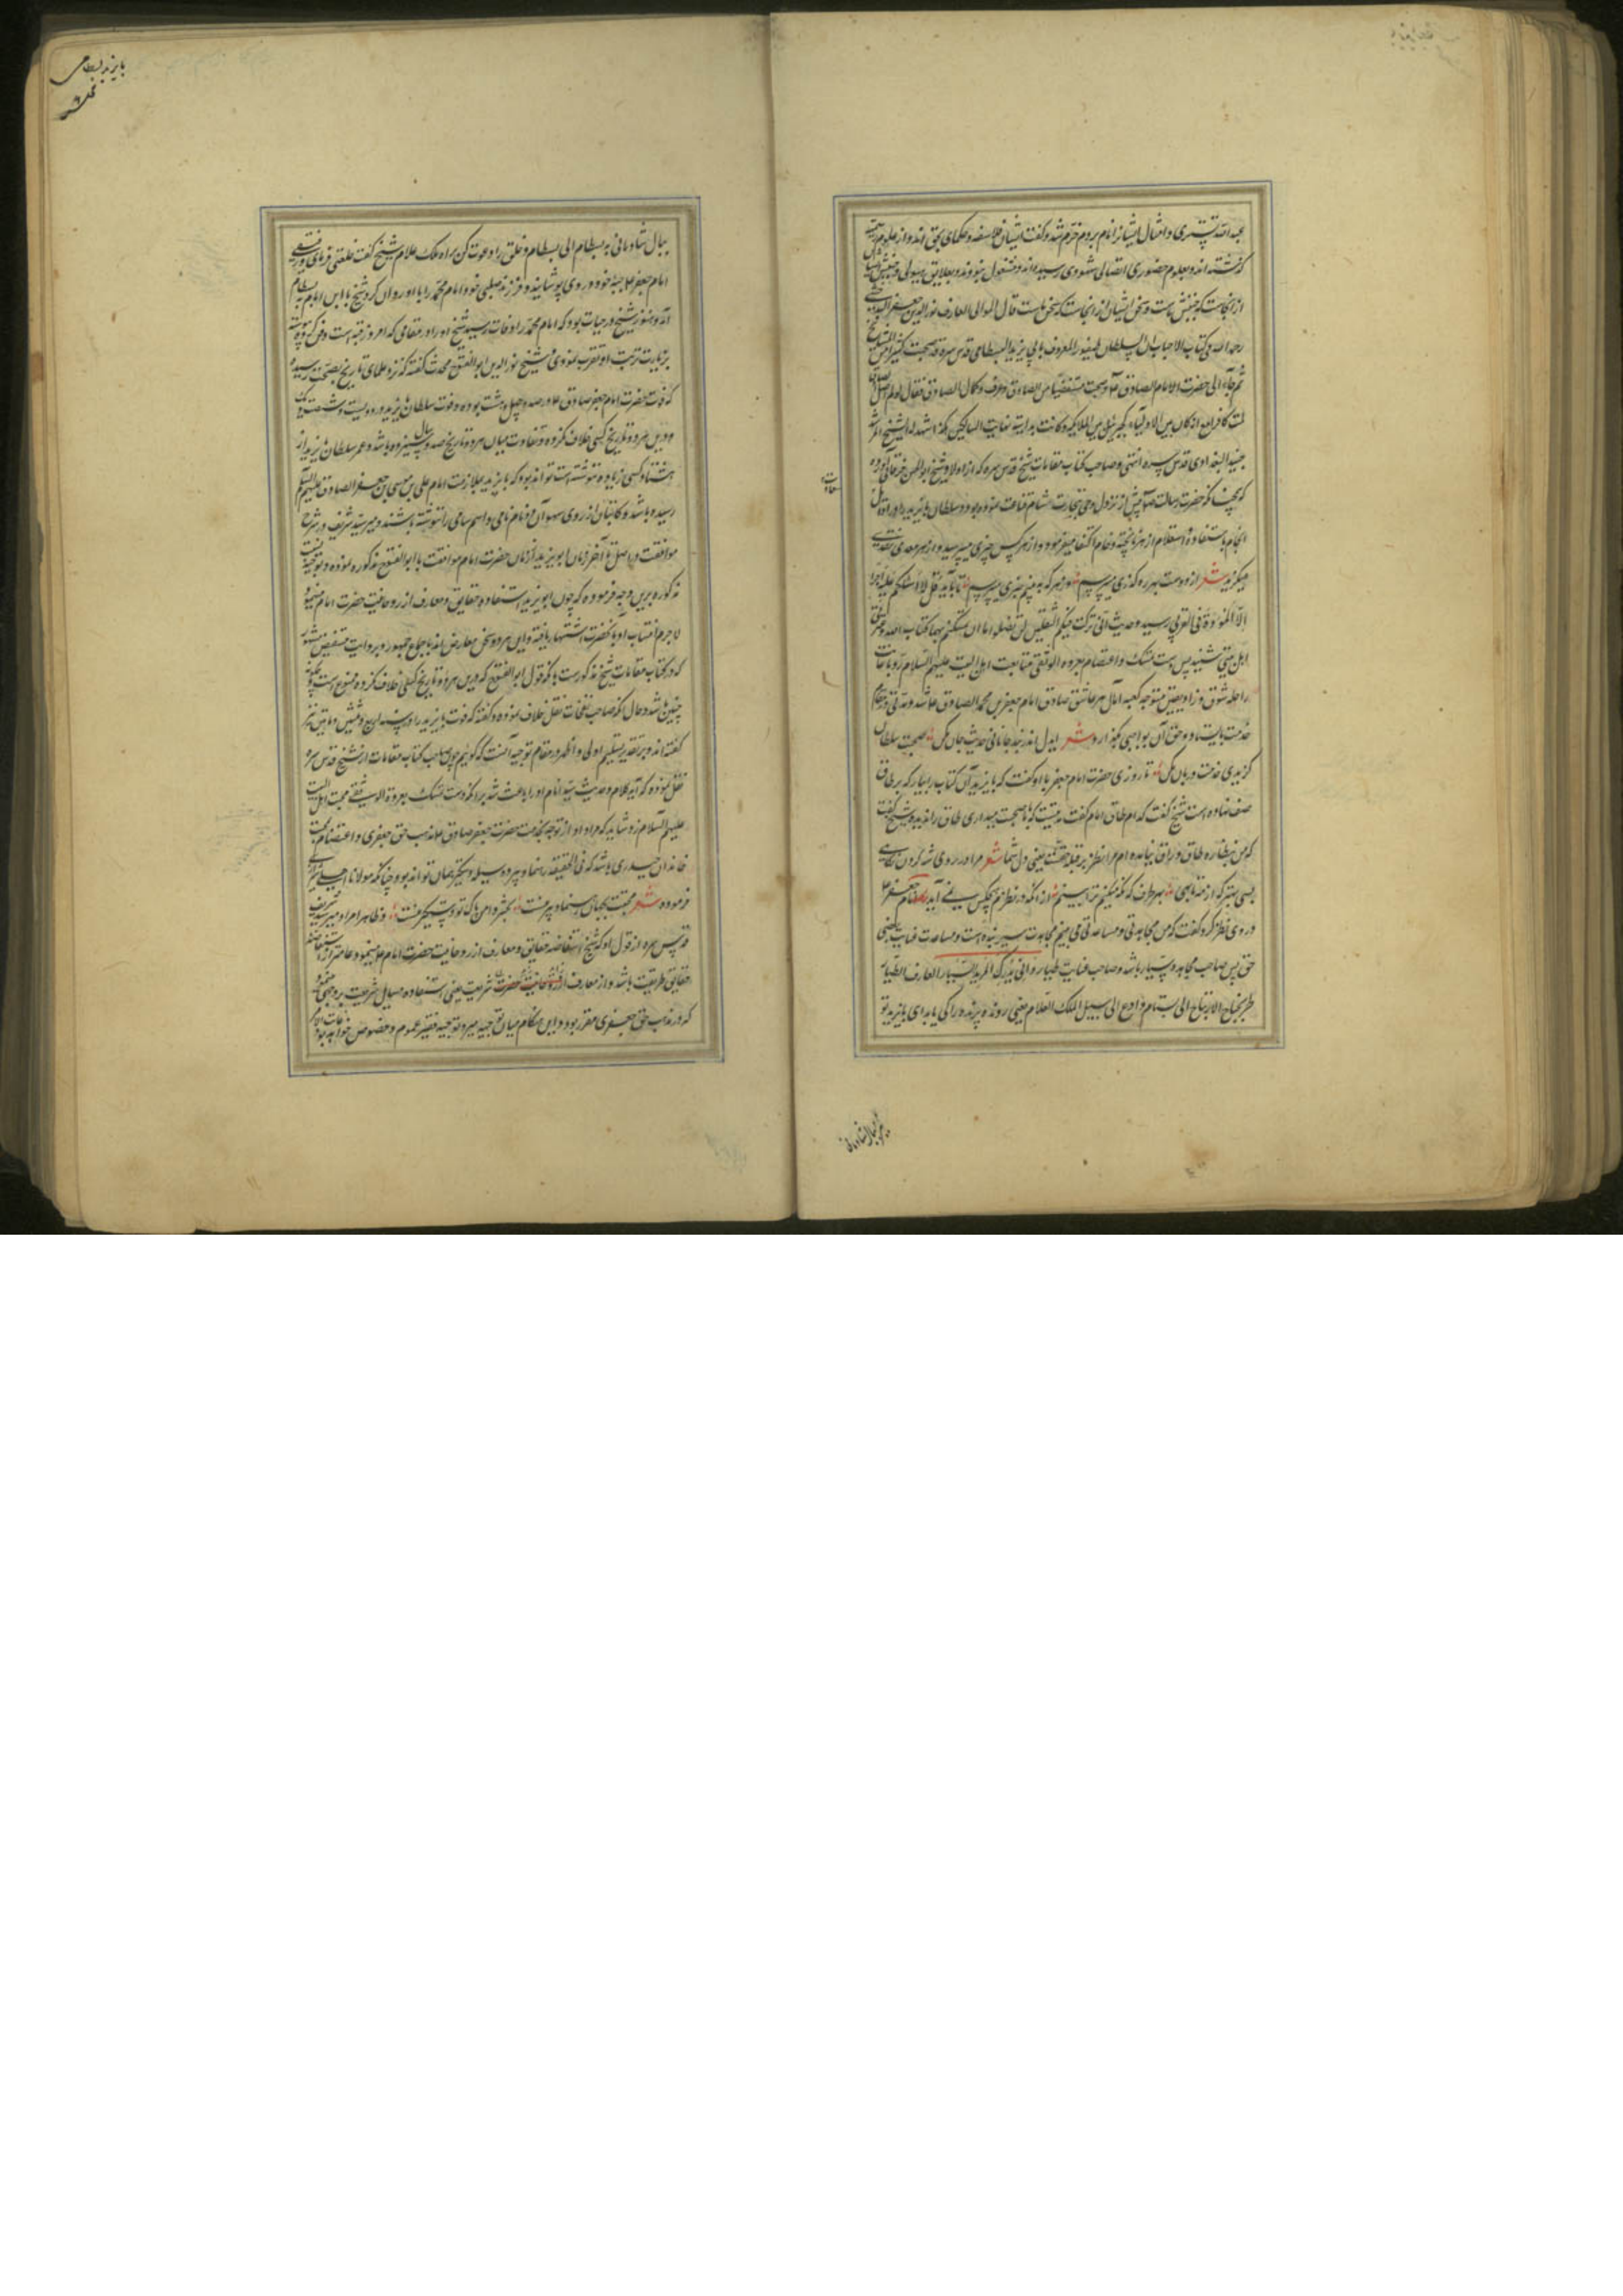 عبدالله تستری و امثال ایشانرا نام بردم خرم شد و گفت ایشان فلاسفه و حکمای بحق اند و از علوم رسمیه
گذشته اند و بعلوم حضوری اتصالی شهودی رسیده اند و مشغول نبودند بعلایق هیولی
از انجاست که جنبش ماست و سخن ایشان از انجاست که سخن ماست قال المولی العارف نورالدین جعفر البدخشی
رحمه الله فی کتاب الاحباب ان السلطان طیفور المعروف بابی یزید البسطامی قدس سره قد صحبت کثیرا من المشایخ
ثم جاء الی حضرت الامام الصادق علیه و صحبت مستفیضا من الصادق و عرف و کمال الصادق فقال لو لم اصل الی الصادق
لمت کافرا مع انه کان بین الاولیاء کجبرئیل بین الملایکه و کانت بدایته نهایت السالکین هکذا شهد له الشیخ المرشد
جنید البغدادی قدس سره انتهی و صاحب کتاب مقامات شیخ قدس سره که از اولاد شیخ ابوالحسن خرقانی بوده
که همچنانکه حضرت رسالت ص پیش از نزول وحی بتجارت شام قناعت نموده بود سلطان بایزید را در اوایل
انجام باستفاده و استعلام از هر ناپخته و خام اکتفا میفرمود و از هر کس چیزی میپرسید و از هر معدن نقدی
میگزید شعر از دوست بهر رهگذری میپرسیم وز هر که به بینیم خبری میپرسیم تا بآیه قل لا اسئلکم علیه اجرا
الا المودة فی القربی رسید و حدیث انی ترکت فیکم الثقلین لن تضلوا ما ان تمسکتم بهما کتاب الله و عترتی
اهل بیتی شنید پس دست تمسک و اعتصام بعروه الوثقی متابعت اهل البیت علیهم السلام زد و با
راحله شوق و زاد یقین متوجه کعبه آمال هر عاشق صادق امام جعفر بن محمد الصادق ع شد و مدتی در مقام
خدمت بایستاد و حق آن بواجبی بگذارد شعر ایدل اندر بند جانانی حدیث جان مکن صحبت سلطان
گزیدی خدمت دربان مکن تا روزی حضرت امام جعفر با او گفت که بایزید آن کتاب را بیار که بر طاق
صف نهاده است شیخ گفت که ام طاق امام گفت مدتیست که با ما صحبت میداری طاق را ندیدی شیخ گفت
که من بنظاره طاق و رواق نیامده ام مرا نظر بر قبله حقست یعنی دل شما شعر مرا در روی شه کردن نگاهی
بسی بهتر که از مه تا بماهی بهر طرف که نگه میکنم ترا بینم از انکه در نظرم هیچکس نمی آید امام جعفر ع
در وی نظر کرد و گفت که من مجاهدتی و مساعدتی می بینم مجاهدت سیر بنده است و مساعدت عنایت
حق پس صاحب مجاهده سیار باشد و صاحب عنایت طیار وانی بشرک المرید السیار العارف الطیار
طر بجناح الارتیاح الی بسطام و ادع الی سبیل الملک العلام یعنی رونده پرنده را کی یابد ای بایزید تو
بپر ببال شادمانی
بایزید بسطامی
ببال شادمانی به بسطام الی بسطام و خلق را دعوت کن براه ملک علام شیخ گفت خلعتی فرمای
امام جعفر ع جبه خود در وی پوشانید و فرزند صلبی خود امام محمد را با او روان کرد شیخ با ابن امام به بسطام
آمد و هنوز شیخ در حیات بود که امام محمد را وفات رسید شیخ او را در مقامی که امروز قبه است دفن کرد و پیوسته
بزیارت تربت او تقرب نمودی و شیخ نورالدین ابوالفتوح محدث گفته که نزد علمای تاریخ بصحت رسیده
که وفات حضرت امام جعفر صادق ع در صد و چهل و هشت بوده و فوت سلطان بایزید در دویست و شصت و یک
و درین هر دو تاریخ کسی خلاف نکرده و تفاوت میان هر دو تاریخ صد و سیزده سال باشد و عمر سلطان بایزید از
هشتاد کسی زیاده ننوشته است تواند بود که بایزید بملازمت امام علی بن موسی بن جعفر الصادق علیهم السلام
رسیده باشد و کاتبان از روی سهو آن دو نام نامی و اسم سامی را ننوشته باشند و میر سید شریف در شرح
مواقف در اصل تاخر زمان ابویزید از زمان حضرت امام موافقت با ابوالفتوح مذکور نموده و توجیه نسبت
مذکوره برین وجه فرموده که چون ابویزید استفاده حقایق و معارف از روحانیت حضرت امام مینمود
لاجرم انتساب او بانحضرت اشتهار یافته و این هر دو سخن معارض اند باجماع جمهور و بروایت مستفیض مشهور
که در کتاب مقامات شیخ مذکورست بلکه قول ابوالفتوح که درین هر دو تاریخ کسی خلاف نکرده ممنوع است چگونه
چنین باشد و حال آنکه صاحب نفحات نقل خلاف نموده و گفته که فوت بایزید را در سنه اربع و ثلثین و مایتین نیز
گفته اند و بر تقدیر تسلیم اولی و اظهر در مقام توجیه آنست که گوییم چون صاحب کتاب مقامات از شیخ قدس سره
نقل نموده که آیه کلام و حدیث سید انام او را باعث شد بر آنکه دست تمسک بعروة الوثقی محبت اهل البیت
علیهم السلام زد شاید که مراد او از توجه بخدمت حضرت جعفر صادق ع مذهب حق جعفری و اعتصام بحب
خاندان حیدری باشد که فی الحقیقه راهنما و پیر و وسیله و دستگیر همان تواند بود چنانکه مولانا اهلی شیرازی
فرموده شعر محبت بجهان رهنما و پیر منست بحشر دامن پاک تو دستگیر منست و ظاهرا مراد میر سید شریف
قدس سره از قول او که شیخ استفاضه حقایق و معارف از روحانیت حضرت امام ع مینمود عامتر از استفاضه
حقایق طریقت باشد و از معارف شریعت یعنی استفاده مسایل شریعت بر وجهی مینمود
که در مذهب حق جعفری مقرر بود و این هنگام میان توجیه میر و توجیه فقیر عموم و خصوص خواهد بود